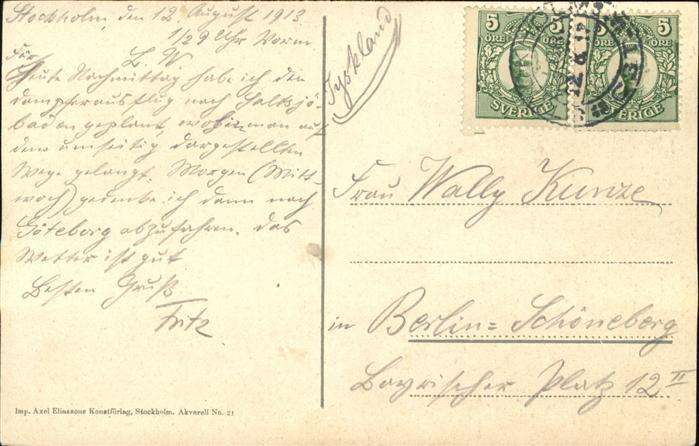 Stockholm, den 12. August 1913.
1/2 9 Uhr Vorm
L. W.
Für heute Nachmittag habe ich den
Dampferausflug nach Saltsjö-
baden geplant, wohin man auf
dem umseitig dargestellten
Wege gelangt. Morgen (Mitt-
woch) gedenke ich dann nach
Göteborg abzufahren. Das
Wetter ist gut
Besten Gruß
Fritz
Tyskland
5 5
ÖRE ÖRE
SVERIGE
5 5
ÖRE ÖRE
SVERIGE
Frau Wally Kunze
in Berlin=Schöneberg
Bayrischer Platz 12 II
Imp. Axel Eliassons Konstförlag, Stockholm. Akvarell No. 21